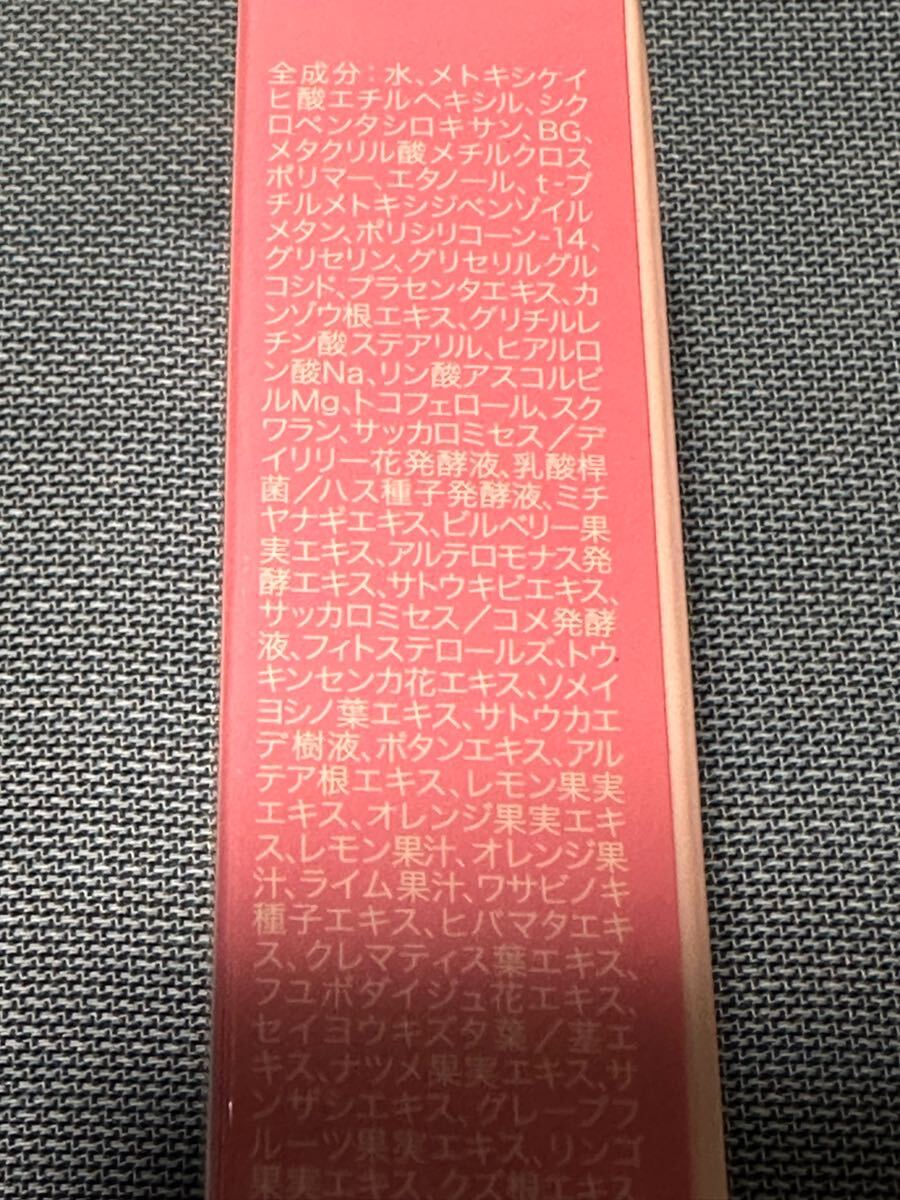 全成分:水、メトキシケイ
ヒ酸エチルヘキシル、シク
ロペンタシロキサン、BG、
メタクリル酸メチルクロス
ポリマー、エタノール、t-ブ
チルメトキシジベンゾイル
メタン、ポリシリコーン-14、
グリセリン、グリセリルグル
コシド、プラセンタエキス、カ
ンゾウ根エキス、グリチルレ
チン酸ステアリル、ヒアルロ
ン酸Na、リン酸アスコルビ
ルMg、トコフェロール、スク
ワラン、サッカロミセス/デ
イリリー花発酵液、乳酸桿
菌/ハス種子発酵液、ミチ
ヤナギエキス、ビルベリー果
実エキス、アルテロモナス発
酵エキス、サトウキビエキス、
サッカロミセス/コメ発酵
液、フィトステロールズ、トウ
キンセンカ花エキス、ソメイ
ヨシノ葉エキス、サトウカエ
デ樹液、ボタンエキス、アル
テア根エキス、レモン果実
エキス、オレンジ果実エキ
ス、レモン果汁、オレンジ果
汁、ライム果汁、ワサビノキ
種子エキス、ヒバマタエキ
ス、クレマティス葉エキス、
フユボダイジュ花エキス、
セイヨウキズタ葉/茎エ
キス、ナツメ果実エキス、サ
ンザシエキス、グレープフ
ルーツ果実エキス、リンゴ
果実エキス、クズ根エキス